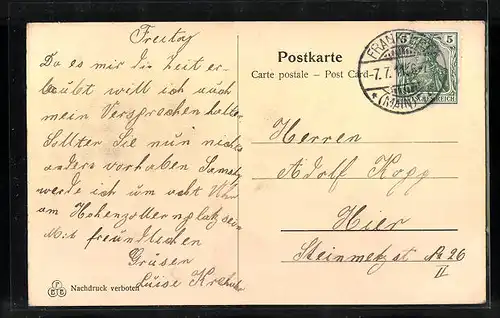 Freitag
Da es mir die Zeit er-
laubt will ich auch
mein Versprechen halten
Sollten Sie nun nichts
anders vorhaben Samstag
werde ich um acht Uhr
am Hohenzollernplatz sein
Mit freundlichen
Grüsen
Luise
Nachdruck verboten
Postkarte
Carte postale – Post Card
FRANKFURT
7.7.11
(MAIN)
5
REICH
Herren
Adolf Kopp
Hier
Steinmetzst № 26
II